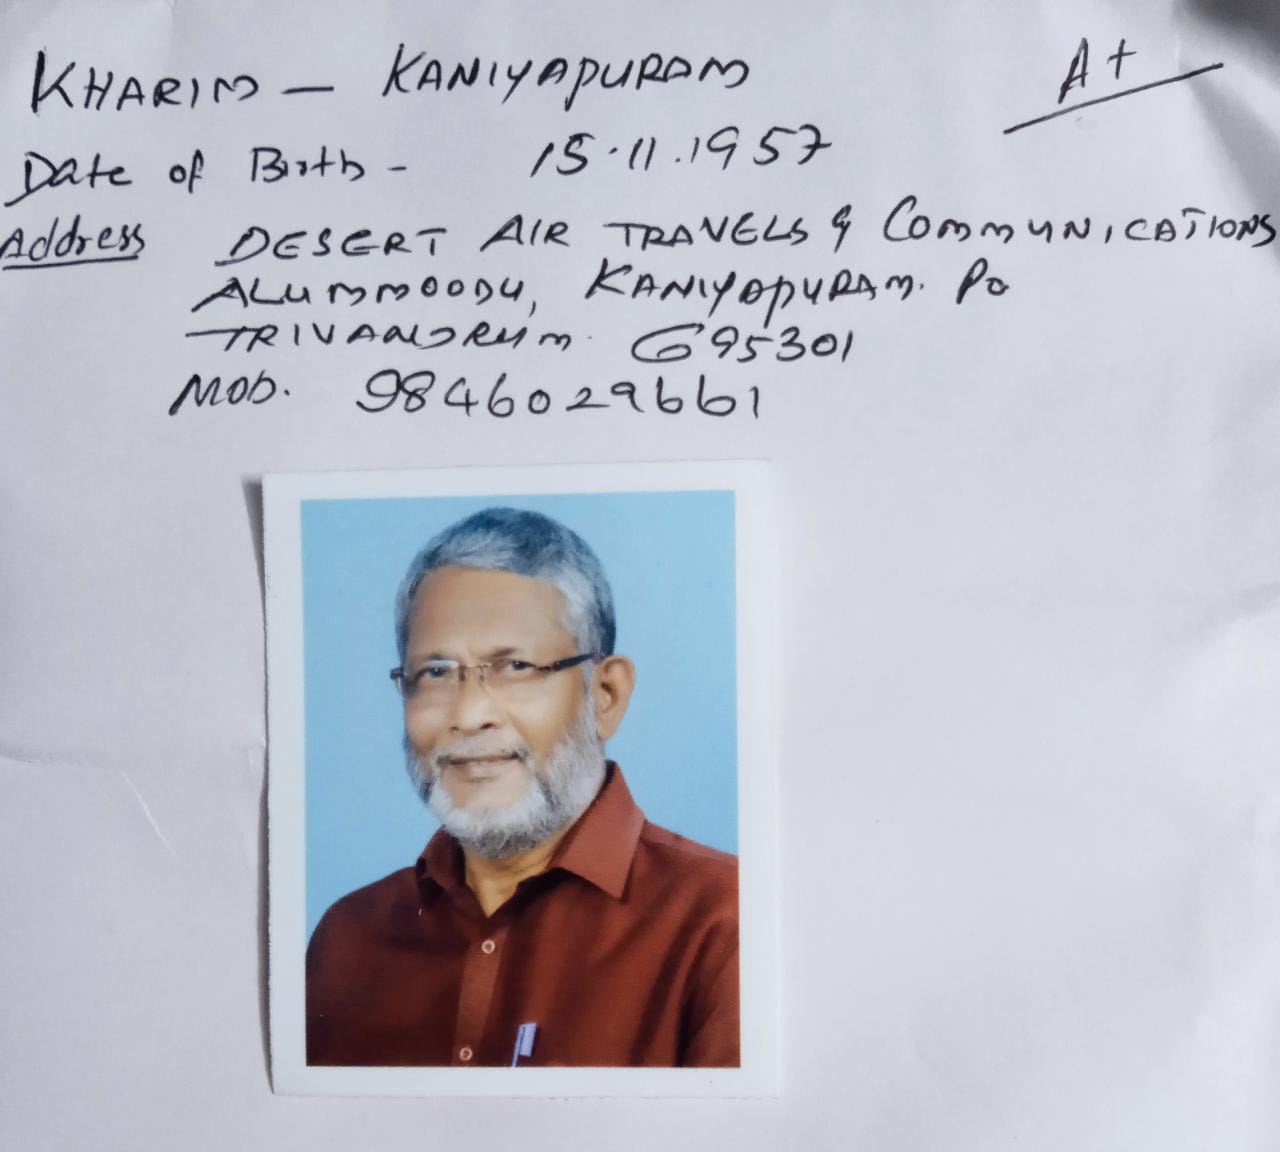 KHARIM - KANIYAPURAM
A+
Date of Birth - 15.11.1957
Address DESERT AIR TRAVELS & COMMUNICATIONS
ALUMMOODU, KANIYAPURAM. Po
TRIVANDRUM. 695301
MOB. 9846029661